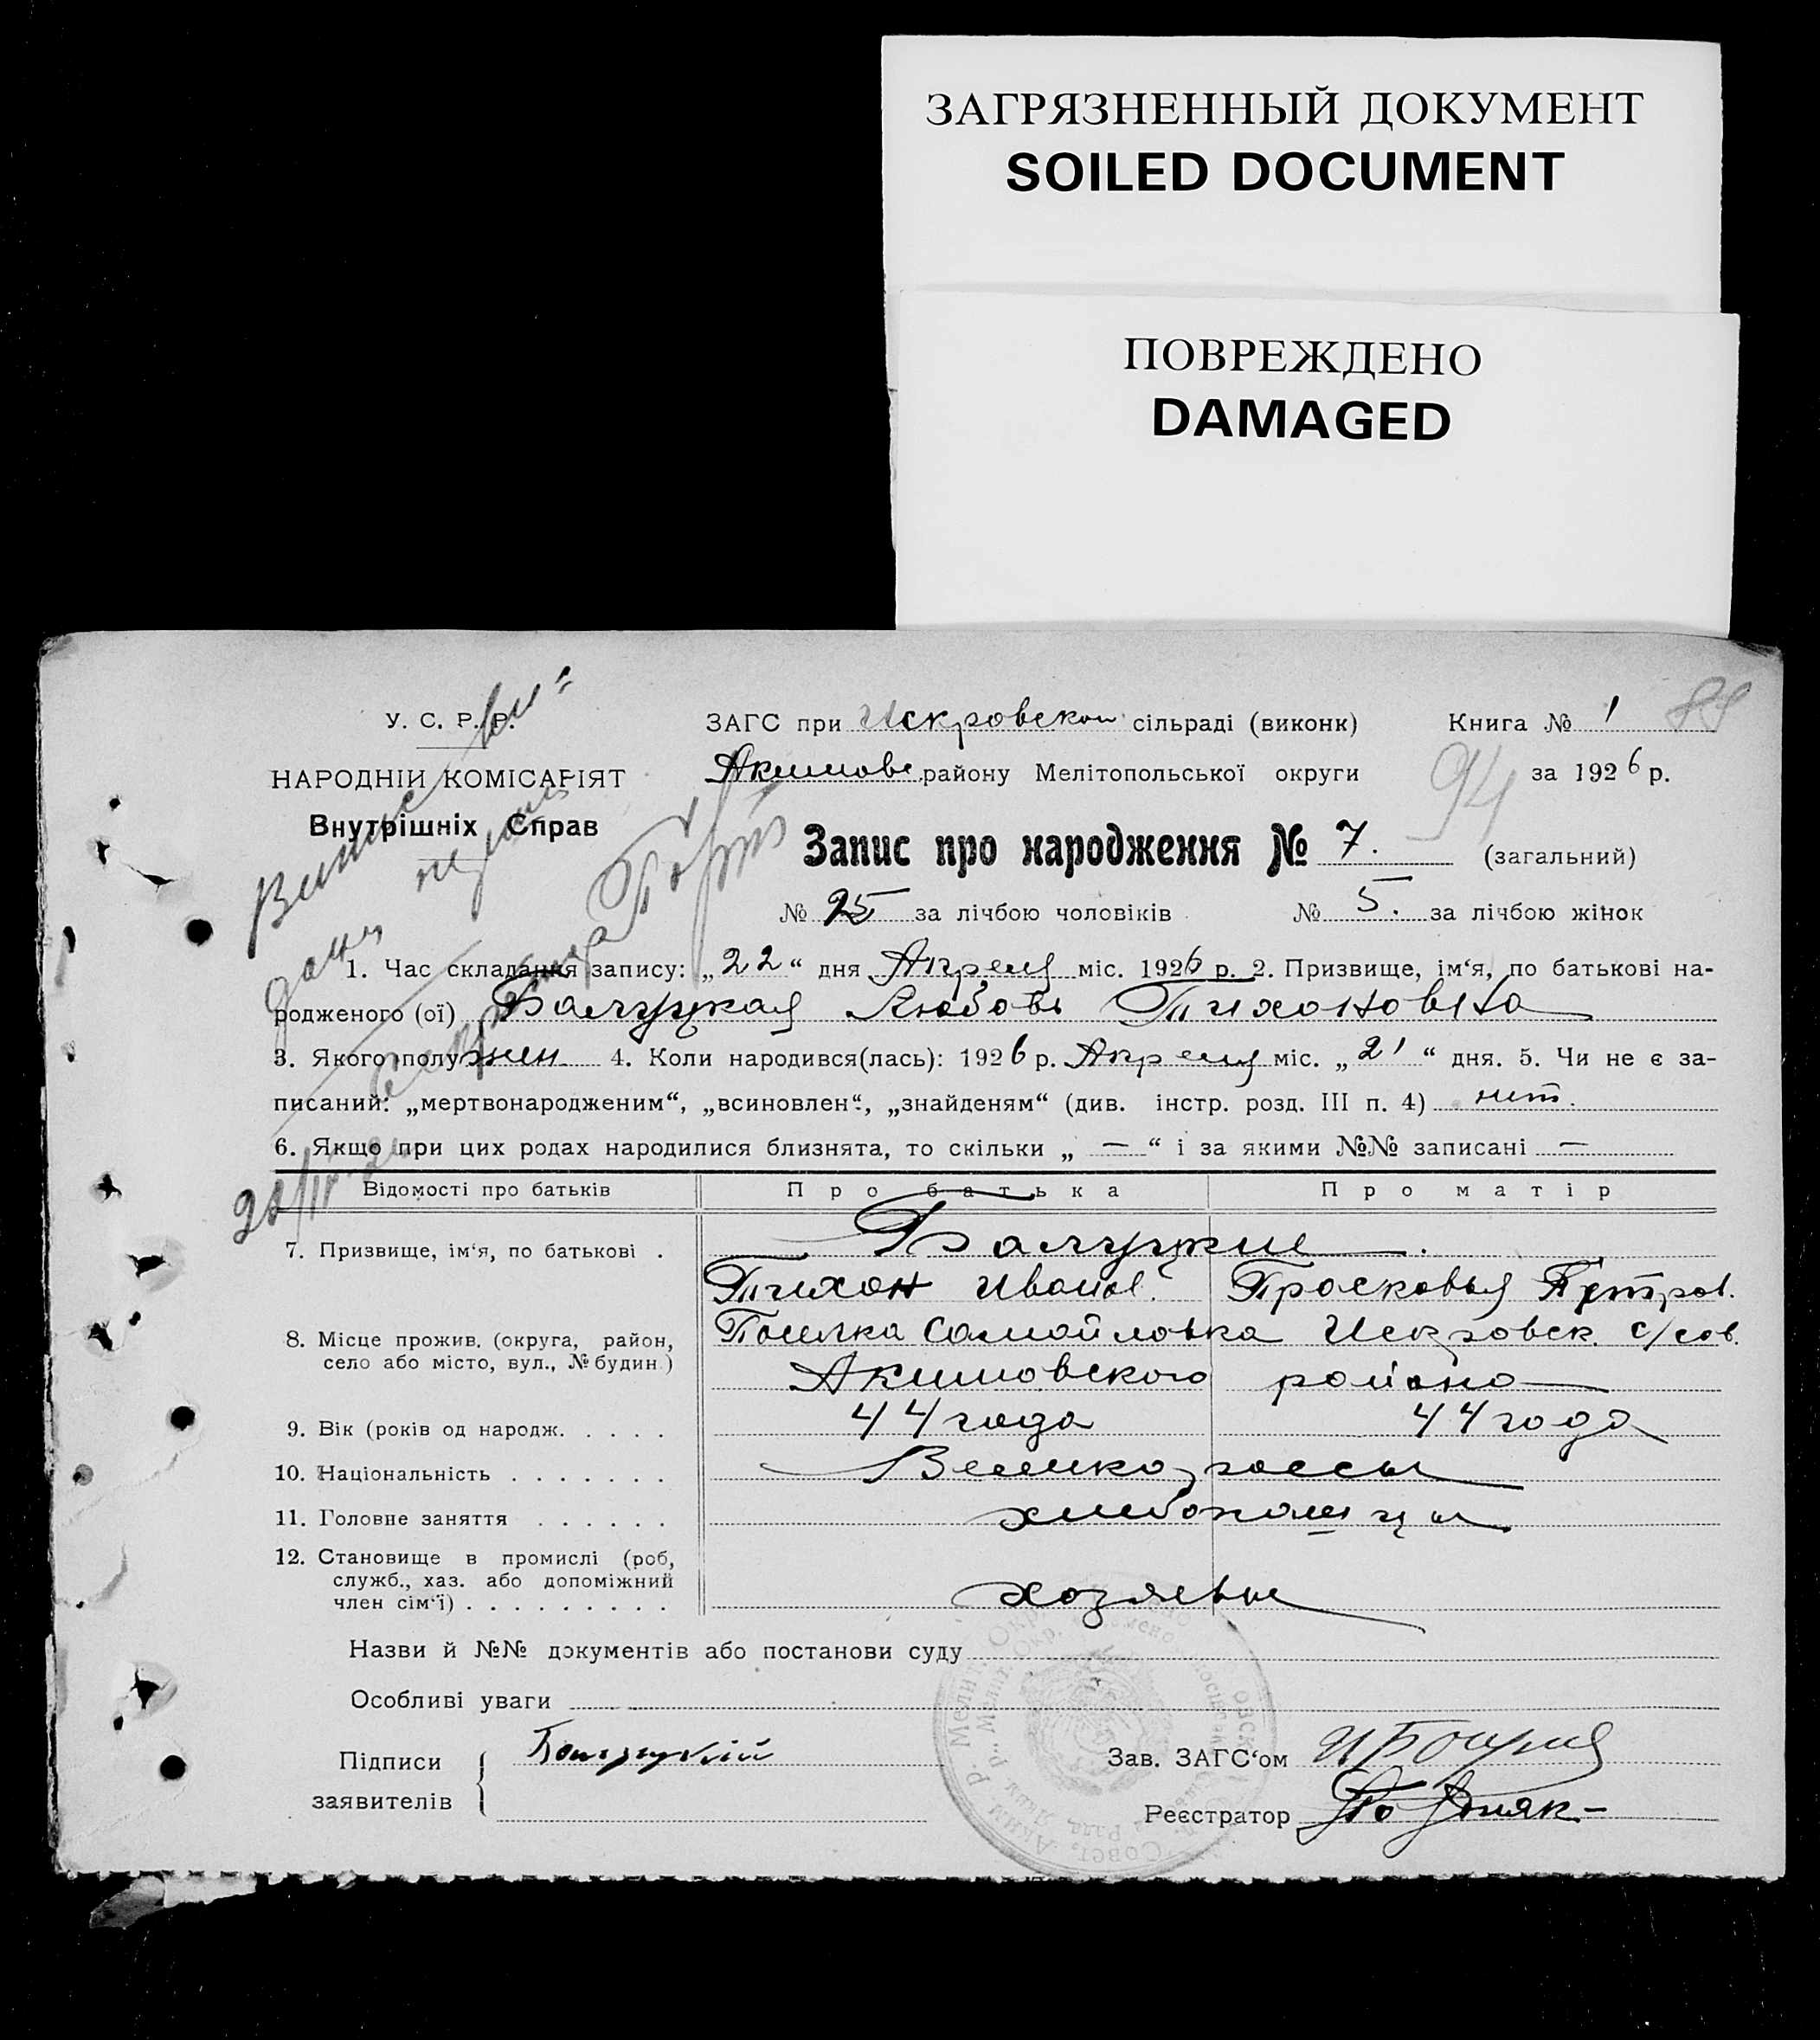 ЗАГРЯЗНЕННЫЙ ДОКУМЕНТ
SOILED DOCUMENT
ПОВРЕЖДЕНО
DAMAGED
У. С. Р. Р.
НАРОДНІЙ КОМІСАРІЯТ
Внутрішніх Справ
ЗАГС при Искровском сільраді (виконк) Книга № 1 89
Акимовс району Мелітопольської округи 94 за 1926 р.
Запис про народження № 7. (загальний)
№ 25 за лічбою чоловіків № 5. за лічбою жінок
1. Час складання запису: „22“ дня Апреля міс. 1926 р. 2. Призвище, ім‘я, по батькові на-
родженого (ої) Любовь Тихоновна
3. Якого полу жен. 4. Коли народився(лась): 1926 р. Апреля міс. „21“ дня. 5. Чи не є за-
писаний: „мертвонародженим“, „всиновлен“, „знайденям“ (див. інстр. розд. III п. 4) нет.
6. Якщо при цих родах народилися близнята, то скільки „ — “ і за якими №№ записані —
Відомості про батьків Про батька Про матір
7. Призвище, ім‘я, по батькові .
Тихон Иванов. Прасковья Петров.
8. Місце прожив. (округа, район, село або місто, вул., № будин.) Поселка Самойловка Искровск. с/сов.
Акимовского района
9. Вік (років од народж. . . . . 44 года 44 года
10. Національність . . . . . . . Великороссы
11. Головне заняття . . . . . . хлебопашцы
12. Становище в промислі (роб,
служб., хаз. або допоміжний
член сім‘ї) . . . . . . . . . хозяева
Назви й №№ документів або постанови суду
Особливі уваги
Підписи
заявителів
Зав. ЗАГС‘ом
Реєстратор